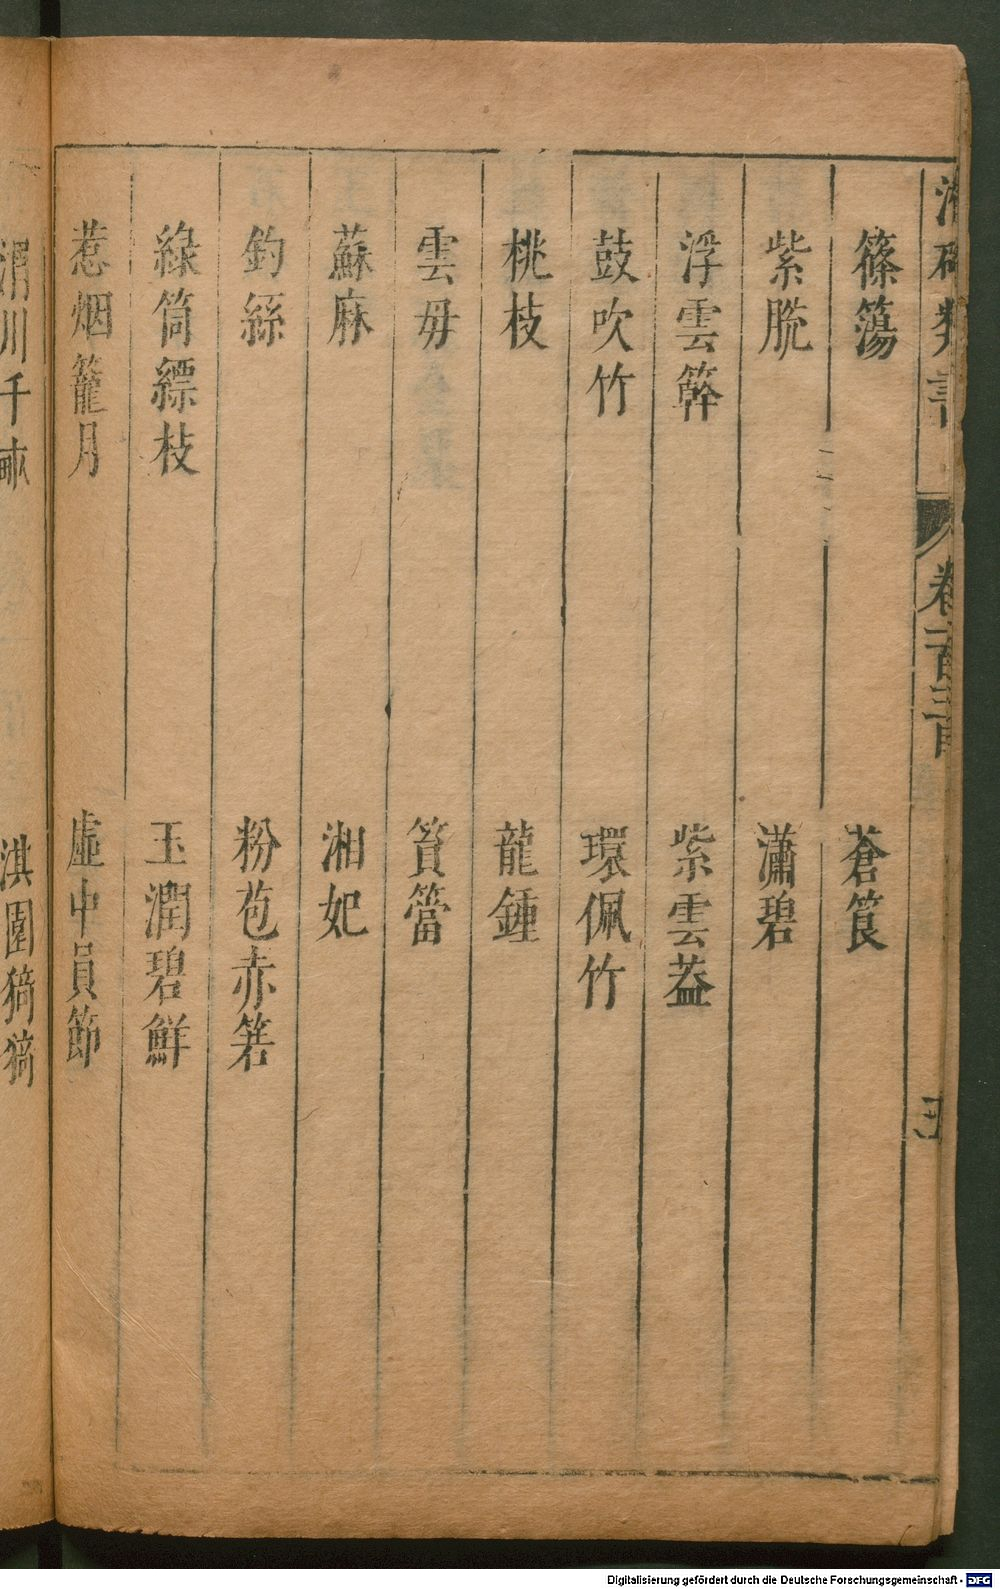 卷一百三
篠簜　蒼筤
紫脫　瀟碧
浮雲簳　紫雲葢
鼓吹竹　環佩竹
桃枝　龍鍾
雲母　篔簹
蘇麻　湘妃
釣絲　粉苞赤箬
綠筒縹枝　玉潤碧鮮
惹烟籠月　虛中員節
渭川千畝　淇園猗猗
Digitalisierung gefördert durch die Deutsche Forschungsgemeinschaft - DFG